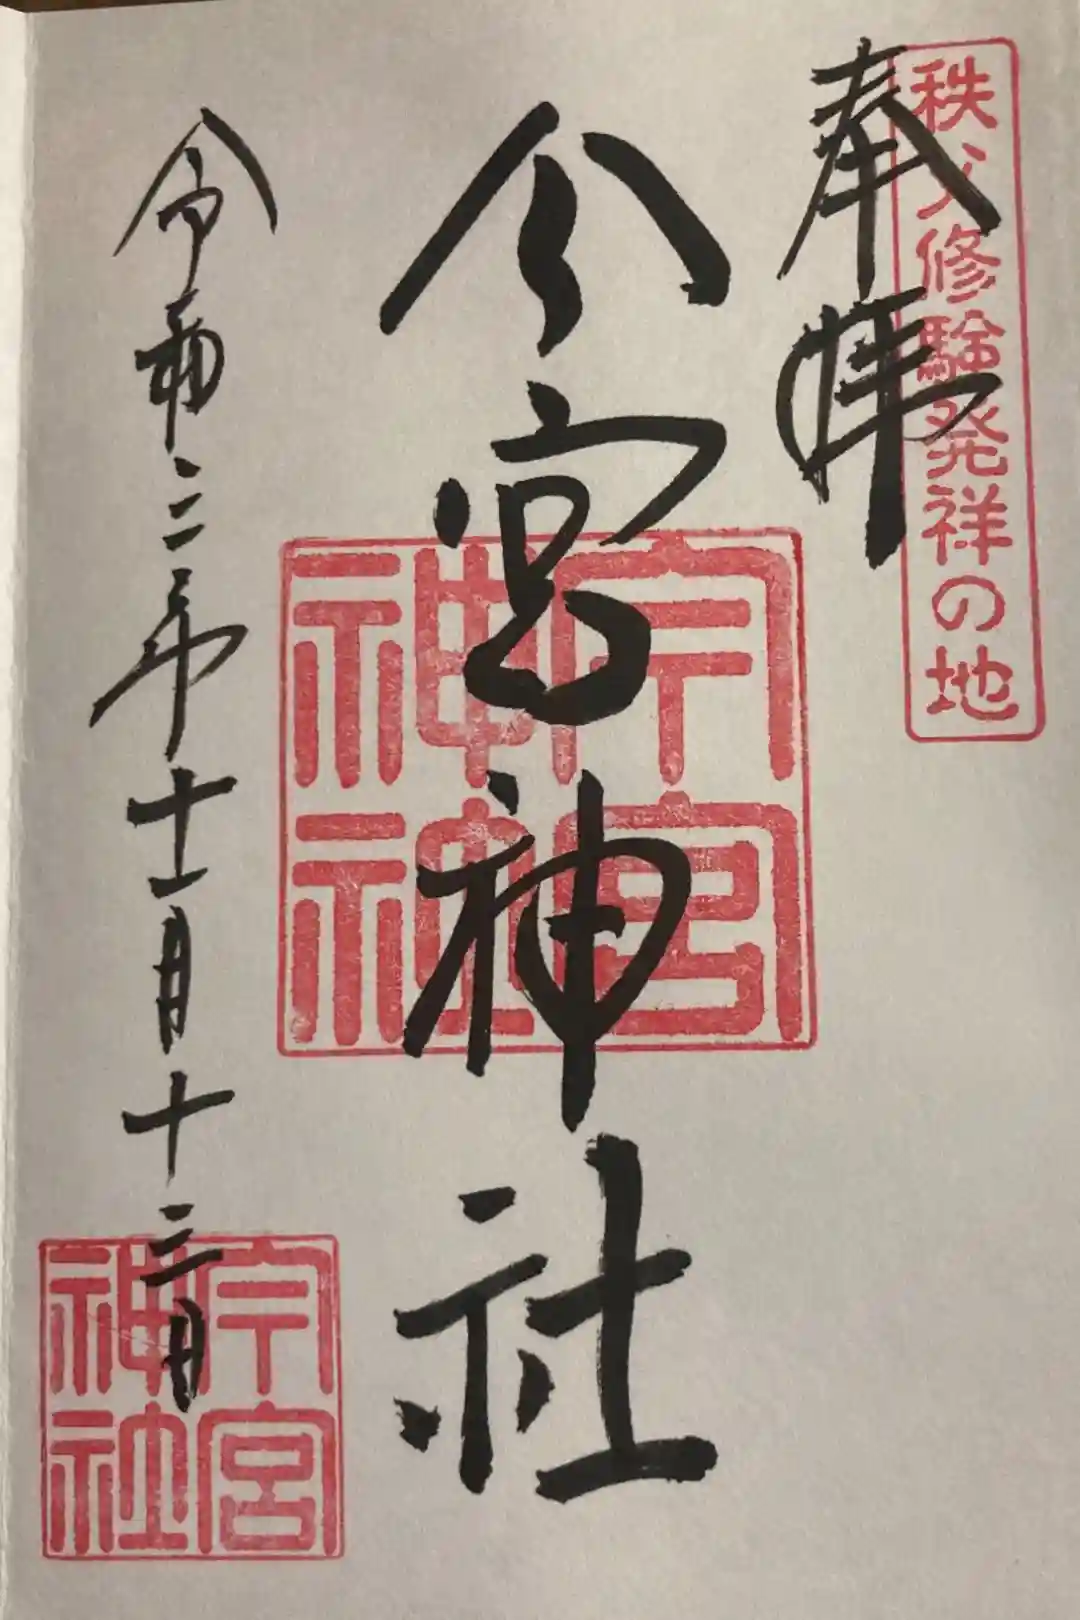 秩父修験発祥の地
奉拝
今宮神社
今宮
神社
令和二年十一月十三日
今宮
神社